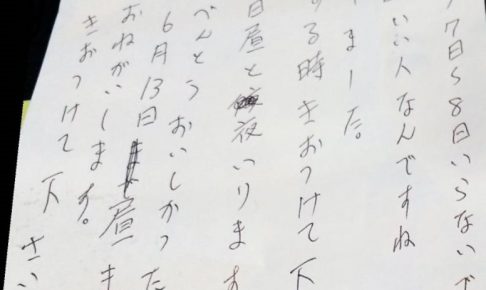 7日ら8日いらないで
いい人なんですね
ました。
る時きおつけて下
日昼と夜いります
べんとうおいしかった
6月13日昼ま
おねがいします。
きおつけて下さい